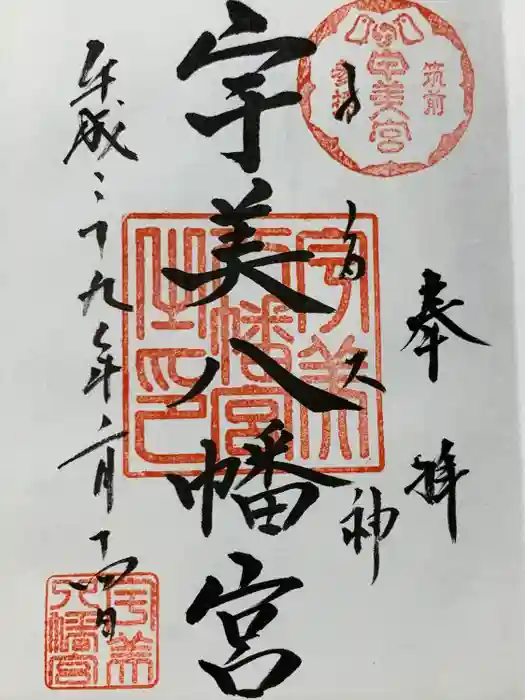 奉拝
筑前
宇美宮
参拝
宇美八幡宮
宇美
八幡宮
之印
平成二十九年二月十四日
宇美
八幡宮